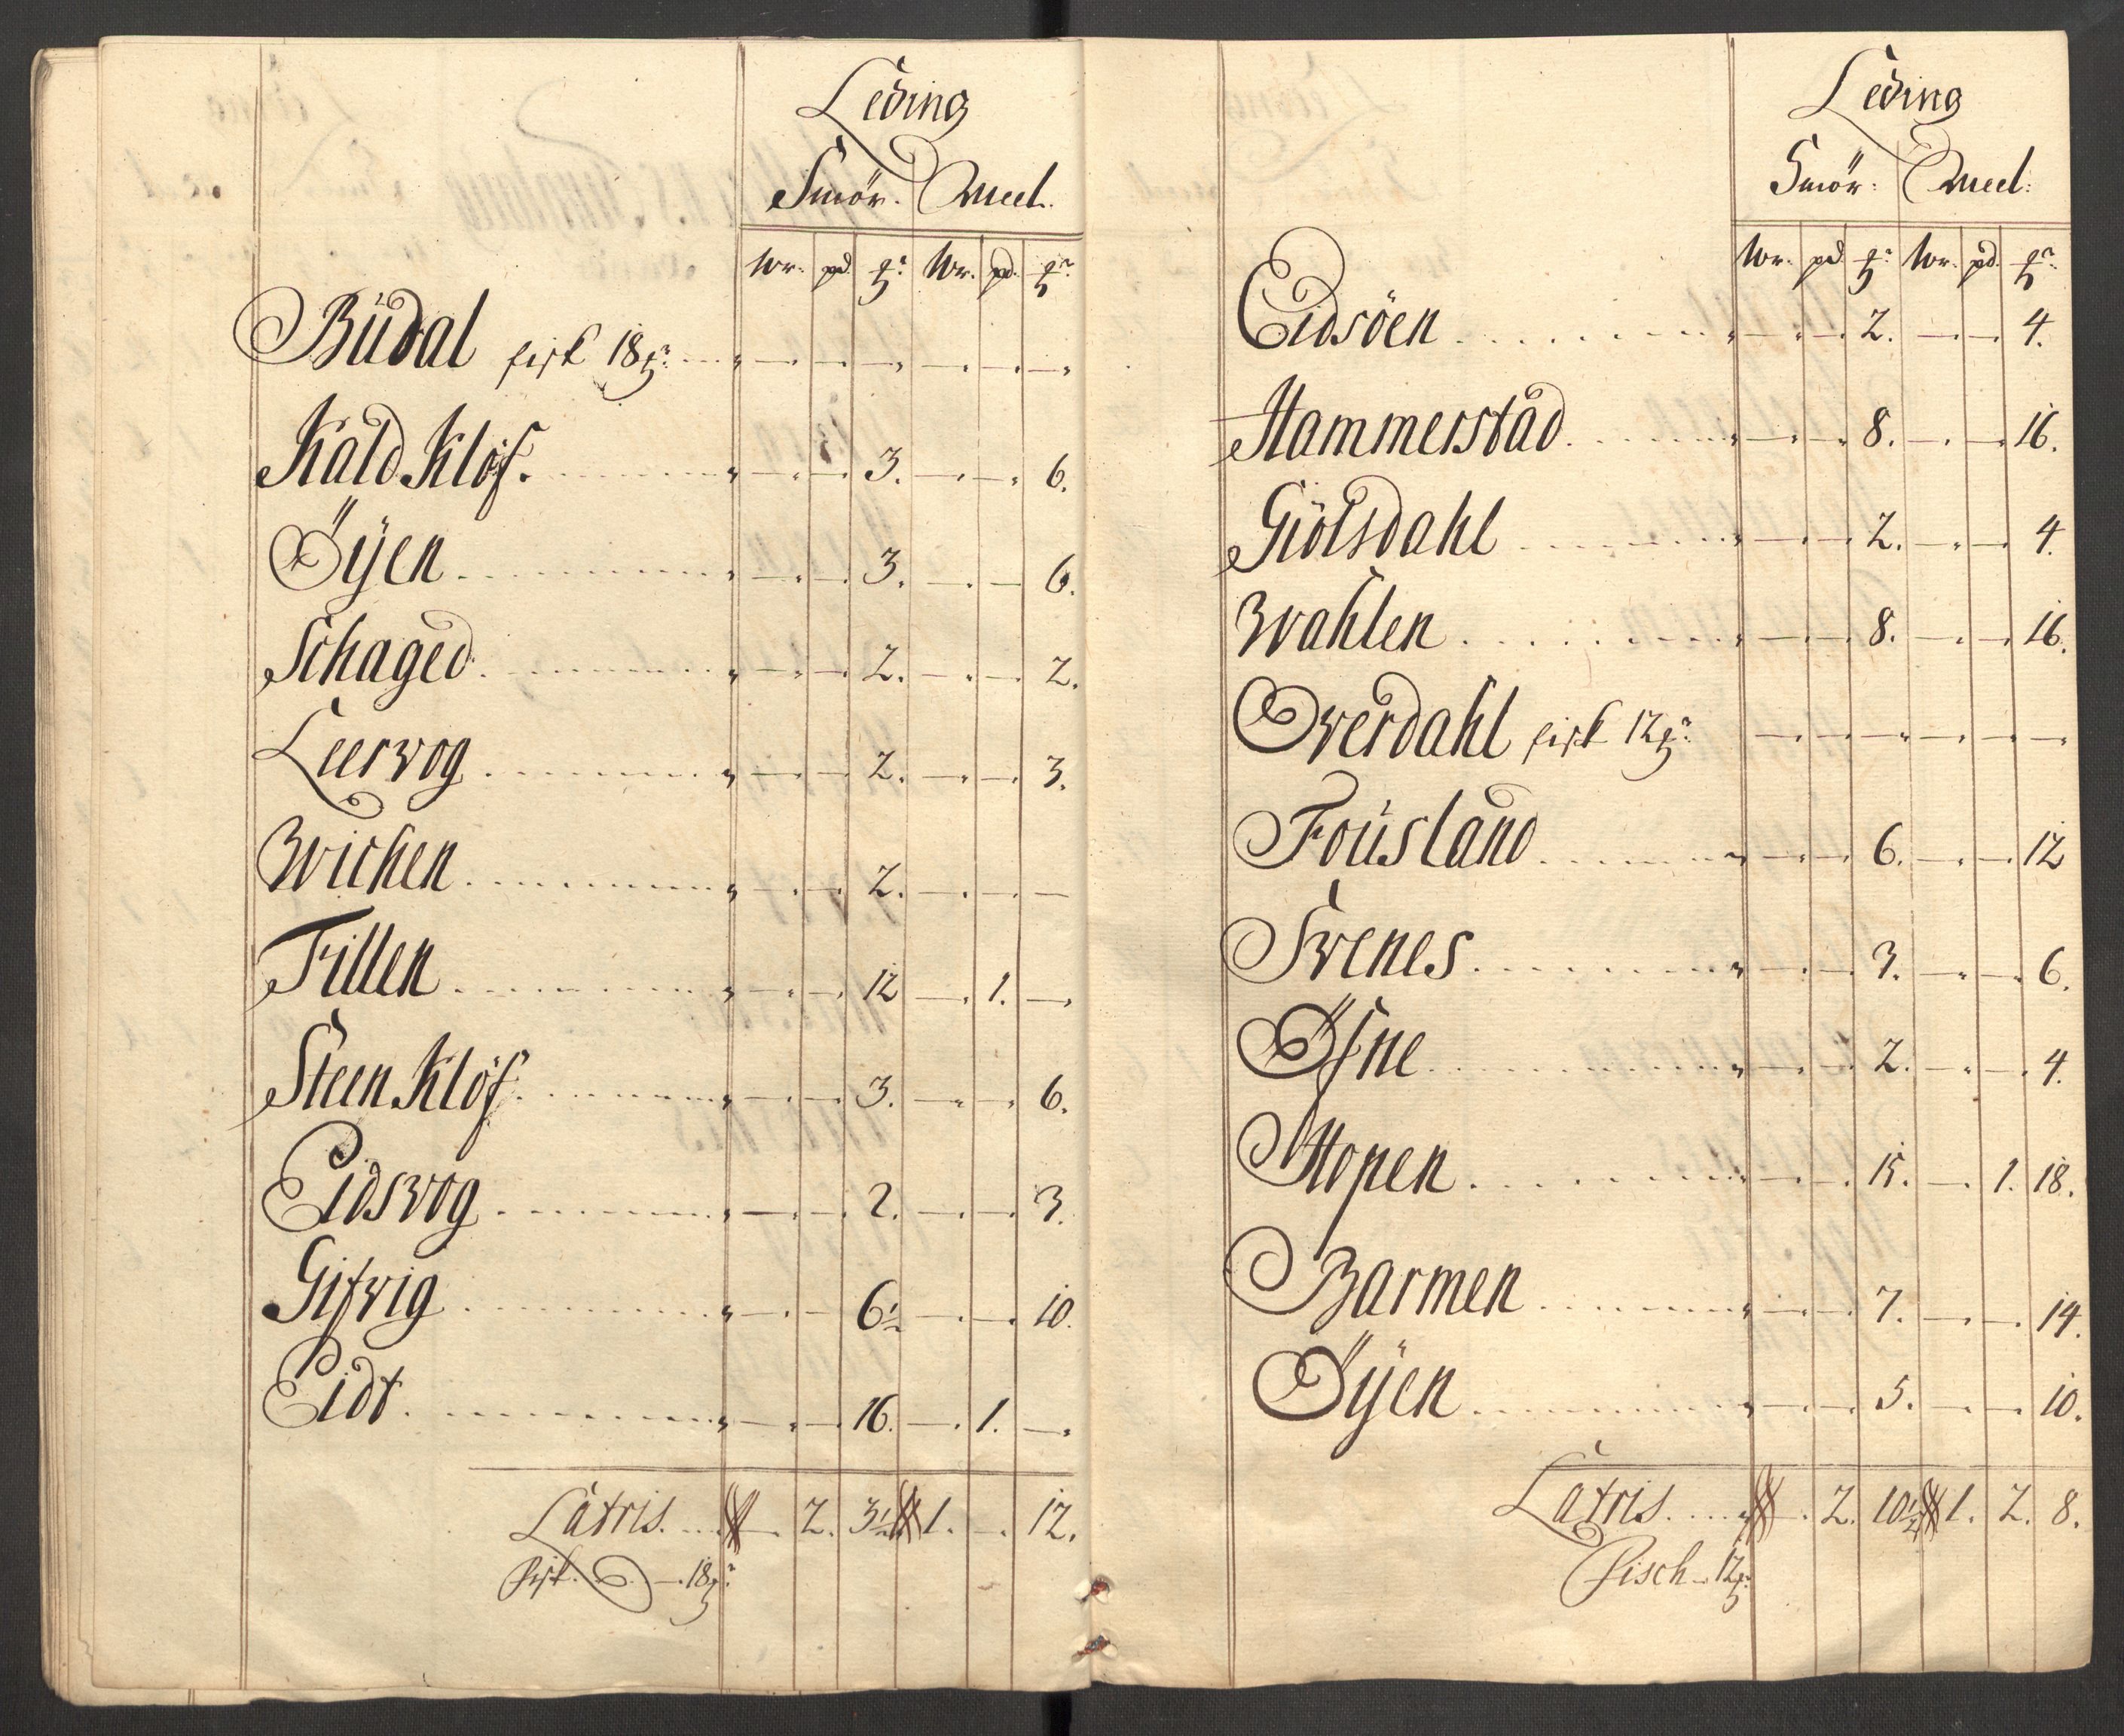 Leding
Smör. Meel.
Wr. pd. ℔r. Wr. pd. ℔r.
Büdal fisk 18 ℔r.
Kald Kløf. 3. 6.
Öÿen 3. 6.
Schaged. 2. 2.
Leervog 2. 3.
Wichen 2.
Fillen 12 1.
Steen Kløf. 3. 6.
Eidsvog 2. 3.
Gifvig 6½ 10.
Eidt 16. 1.
Latris. 2. 3½ 1. 12.
Fisk. 18 ℔r.
Leding
Smör: Meel:
Wr. pd. ℔r. Wr. pd. ℔r.
Eidsöen 2. 4.
Hammerstad. 8. 16.
Giölsdahl 2. 4.
Wahlen 8. 16.
Overdahl fisk 12 ℔r.
Foüsland 6. 12
Svenes 3. 6.
Öfne 2. 4.
Hopen 15. 1. 18.
Barmen 7. 14.
Öÿen 5. 10.
Latris. 2. 10½ 1. 2. 8.
Fisch 12 ℔r.